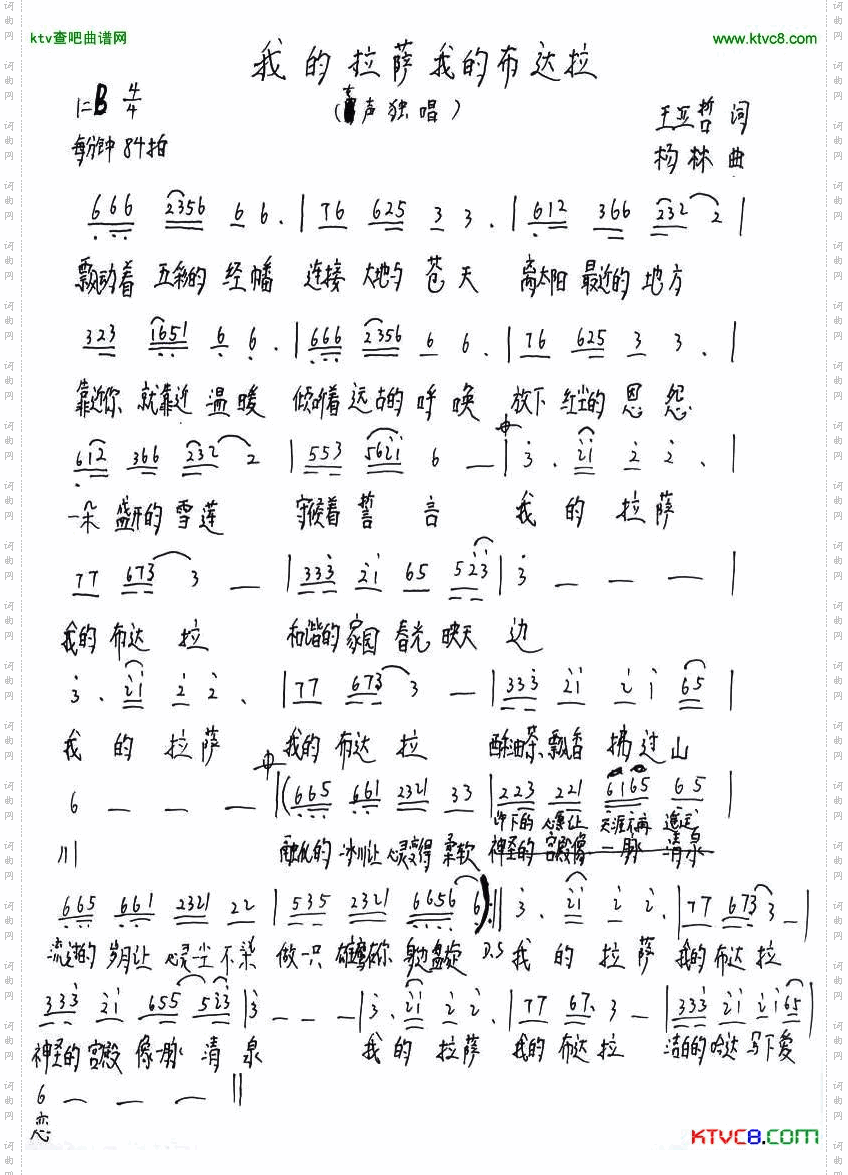 ktv查吧曲谱网
www.ktvc8.com
我的拉萨我的布达拉
1=B 4/4
(声独唱)
王亚哲 词
每分钟84拍
杨林 曲
666 2356 6 6. | 76 625 3 3. | 612 366 232 2 |
飘动着 五彩的 经幡 连接 大地与 苍天 离太阳 最近的 地方
323 1651 6 6. | 666 2356 6 6. | 76 625 3 3. |
靠近你 就靠近 温暖 倾听着 远古的 呼唤 放下 红尘的 恩怨
612 366 232 2 | 553 5621 6 — | 3. 21 2 2. |
一朵 盛开的 雪莲 守候着 誓言 我的 拉萨
77 673 3 — | 333 21 65 523 | 3 — — — |
我的 布达拉 和谐的 家园 春光 映天边
3. 21 2 2. | 77 673 3 — | 333 21 2 1 65 |
我的 拉萨 我的 布达拉 酥油茶 飘香 拂过 山
6 — — — ‖ (665 661 2321 33 | 223 221 6165 65
许下的 心愿让 天涯不再 遥远
川 融化的 冰川让 心灵变得 柔软 神圣的 宫殿像 一脉 清泉
665 661 2321 22 | 535 2321 6656 6) :‖ 3. 21 2 2. | 77 673 3 — |
流逝的 岁月让 心灵一尘不染 做一只 雄鹰在你 身边盘旋 D.S 我的 拉萨 我的 布达拉
333 21 655 523 | 3 — — — | 3. 21 2 2. | 77 67. 3 — | 333 21 21 65 |
神圣的 宫殿 像一脉 清泉 我的 拉萨 我的 布达拉 洁白的 哈达 写下 爱
6 — — — ‖
恋
KTVC8.COM
词曲网